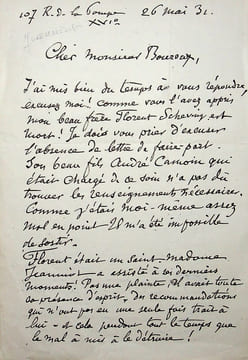 107 R. d. la Pompe 26 Mai 31.
XVIe
Cher Monsieur Boureau,
J'ai mis bien du temps à vous répondre,
excusez moi! Comme vous l'avez appris
mon beau frère Florent Schevrin est
mort! Je dois vous prier d'excuser
l'absence de lettre de faire-part.
Son beau fils André Camoin qui
était chargé de ce soin n'a pas dû
trouver les renseignements nécessaires.
Comme j'étais moi-même assez
mal en point - Il m'a été impossible
de sortir.
Florent était un Saint - Madame
Jeannin a assisté à ses derniers
moments. Pas une plainte. Il avait toute
sa présence d'esprit. Des recommandations
qui n'ont pas eu une seule fois trait à
lui - et cela pendant tout le temps que
le mal a mis à le détruire!